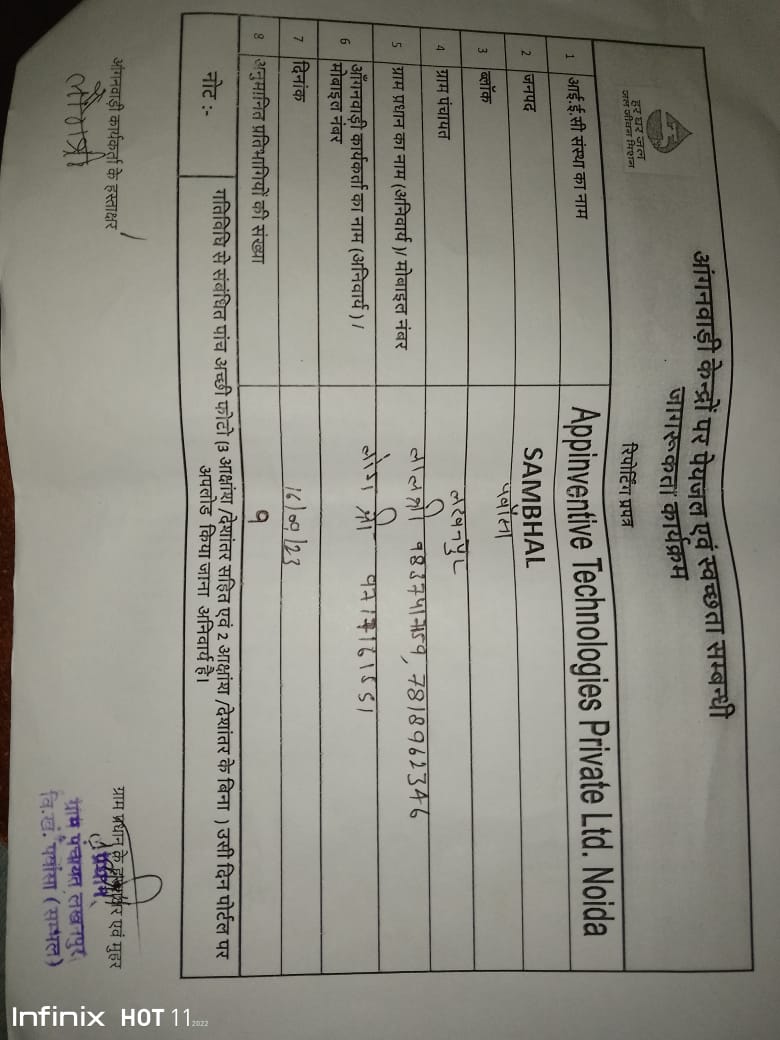 आंगनवाड़ी केन्द्रों पर पेयजल एवं स्वच्छता सम्बन्धी
जागरूकता कार्यक्रम
हर घर जल
जल जीवन मिशन
रिपोर्टिंग प्रपत्र
1 आई.ई.सी संस्था का नाम Appinventive Technologies Private Ltd. Noida
2 जनपद SAMBHAL
3 ब्लॉक पवांसा
4 ग्राम पंचायत लखनपुर
5 ग्राम प्रधान का नाम (अनिवार्य)/ मोबाइल नंबर 7818962346
6 आँगनवाड़ी कार्यकर्ता का नाम (अनिवार्य ) /
मोबाइल नंबर
7 दिनांक
8 अनुमानित प्रतिभागियों की संख्या 9
नोट :- गतिविधि से संबंधित पांच अच्छी फोटो (3 आक्षांश /देशांतर सहित एवं 2 आक्षांश /देशांतर के बिना ) उसी दिन पोर्टल पर
अपलोड किया जाना अनिवार्य है।
आंगनवाड़ी कार्यकर्ता के हस्ताक्षर
ग्राम प्रधान के हस्ताक्षर एवं मुहर
प्रधान
ग्राम पंचायत लखनपुर
वि.खं. पवांसा (सम्भल)
Infinix HOT 11 2022